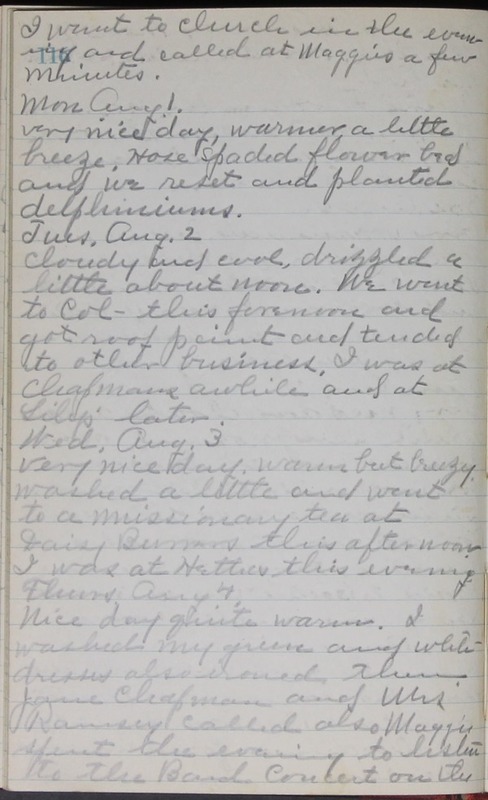 I went to church in the even-
ing and called at Maggies a few
116
minutes.
Mon Aug 1.
very nice day, warmer, a little
breeze. Hose spaded flower bed
and we reset and planted
delphiniums.
Tues, Aug. 2
cloudy and cool, drizzled a
little about noon. We went
to Col- this forenoon and
got roof paint and tended
to other business, I was at
Chapmans awhile and at
later.
Wed, Aug. 3
very nice day. warm but breezy.
washed a little and went
to a missionary tea at
Daisy this afternoon
I was at Hetties this evening
Thurs Aug 4,
Nice day quite warm. I
washed my green and white
dresses also ironed them
Jane Chapman and Mrs.
Ramsey called also Maggie
spent the evening to listen
to the Band Concert on the